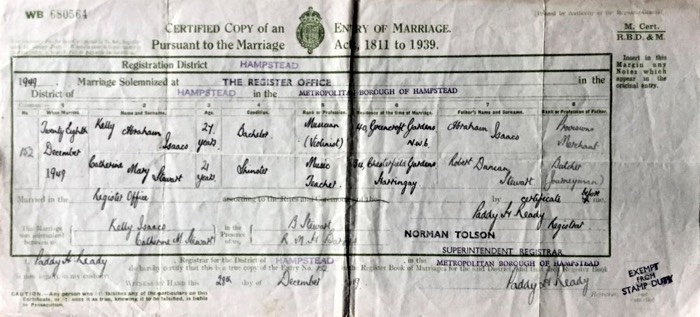 WB 680564
CERTIFIED COPY of an ENTRY OF MARRIAGE.
Pursuant to the Marriage Acts, 1811 to 1939.
M. Cert.
R.B.D. & M.
Registration District HAMPSTEAD
Insert in this
Margin any
Notes which
appear in the
original entry.
1949. Marriage Solemnized at THE REGISTER OFFICE in the
District of HAMPSTEAD in the METROPOLITAN BOROUGH OF HAMPSTEAD
1 2 3 4 5 6 7 8
No. When Married. Name and Surname. Age. Condition. Rank or Profession. Residence at the time of Marriage. Father's Name and Surname. Rank or Profession of Father.
152
Twenty Eighth
December
1949
Kelly Abraham Isaacs
27 years
Bachelor
Musician (Violinist)
Gardens
N.W.6
Abraham Isaacs
Provisions Merchant
Catherine Mary Stewart
21 years
Spinster
Music Teacher
Gardens
Harringay
Robert Duncan Stewart
Butcher (Journeyman)
Married in the Register Office according to the Rites and Ceremonies of the by certificate before me,
This Marriage was solemnized between us,
Kelly Isaacs
Catherine M. Stewart
in the Presence of us,
B Stewart
Paddy H Ready
Registrar
NORMAN TOLSON
SUPERINTENDENT REGISTRAR
I, Paddy H Ready Registrar for the District of HAMPSTEAD in the METROPOLITAN BOROUGH OF HAMPSTEAD
do hereby certify that this is a true copy of the Entry No. 152 in the Register Book of Marriages for the said District
WITNESS MY HAND this 29th day of December
Paddy H Ready
CAUTION.—Any person who (1) falsifies any of the particulars on this
Certificate, or (2) uses it as true, knowing it to be falsified, is liable
to Prosecution.
EXEMPT
FROM
STAMP DUTY